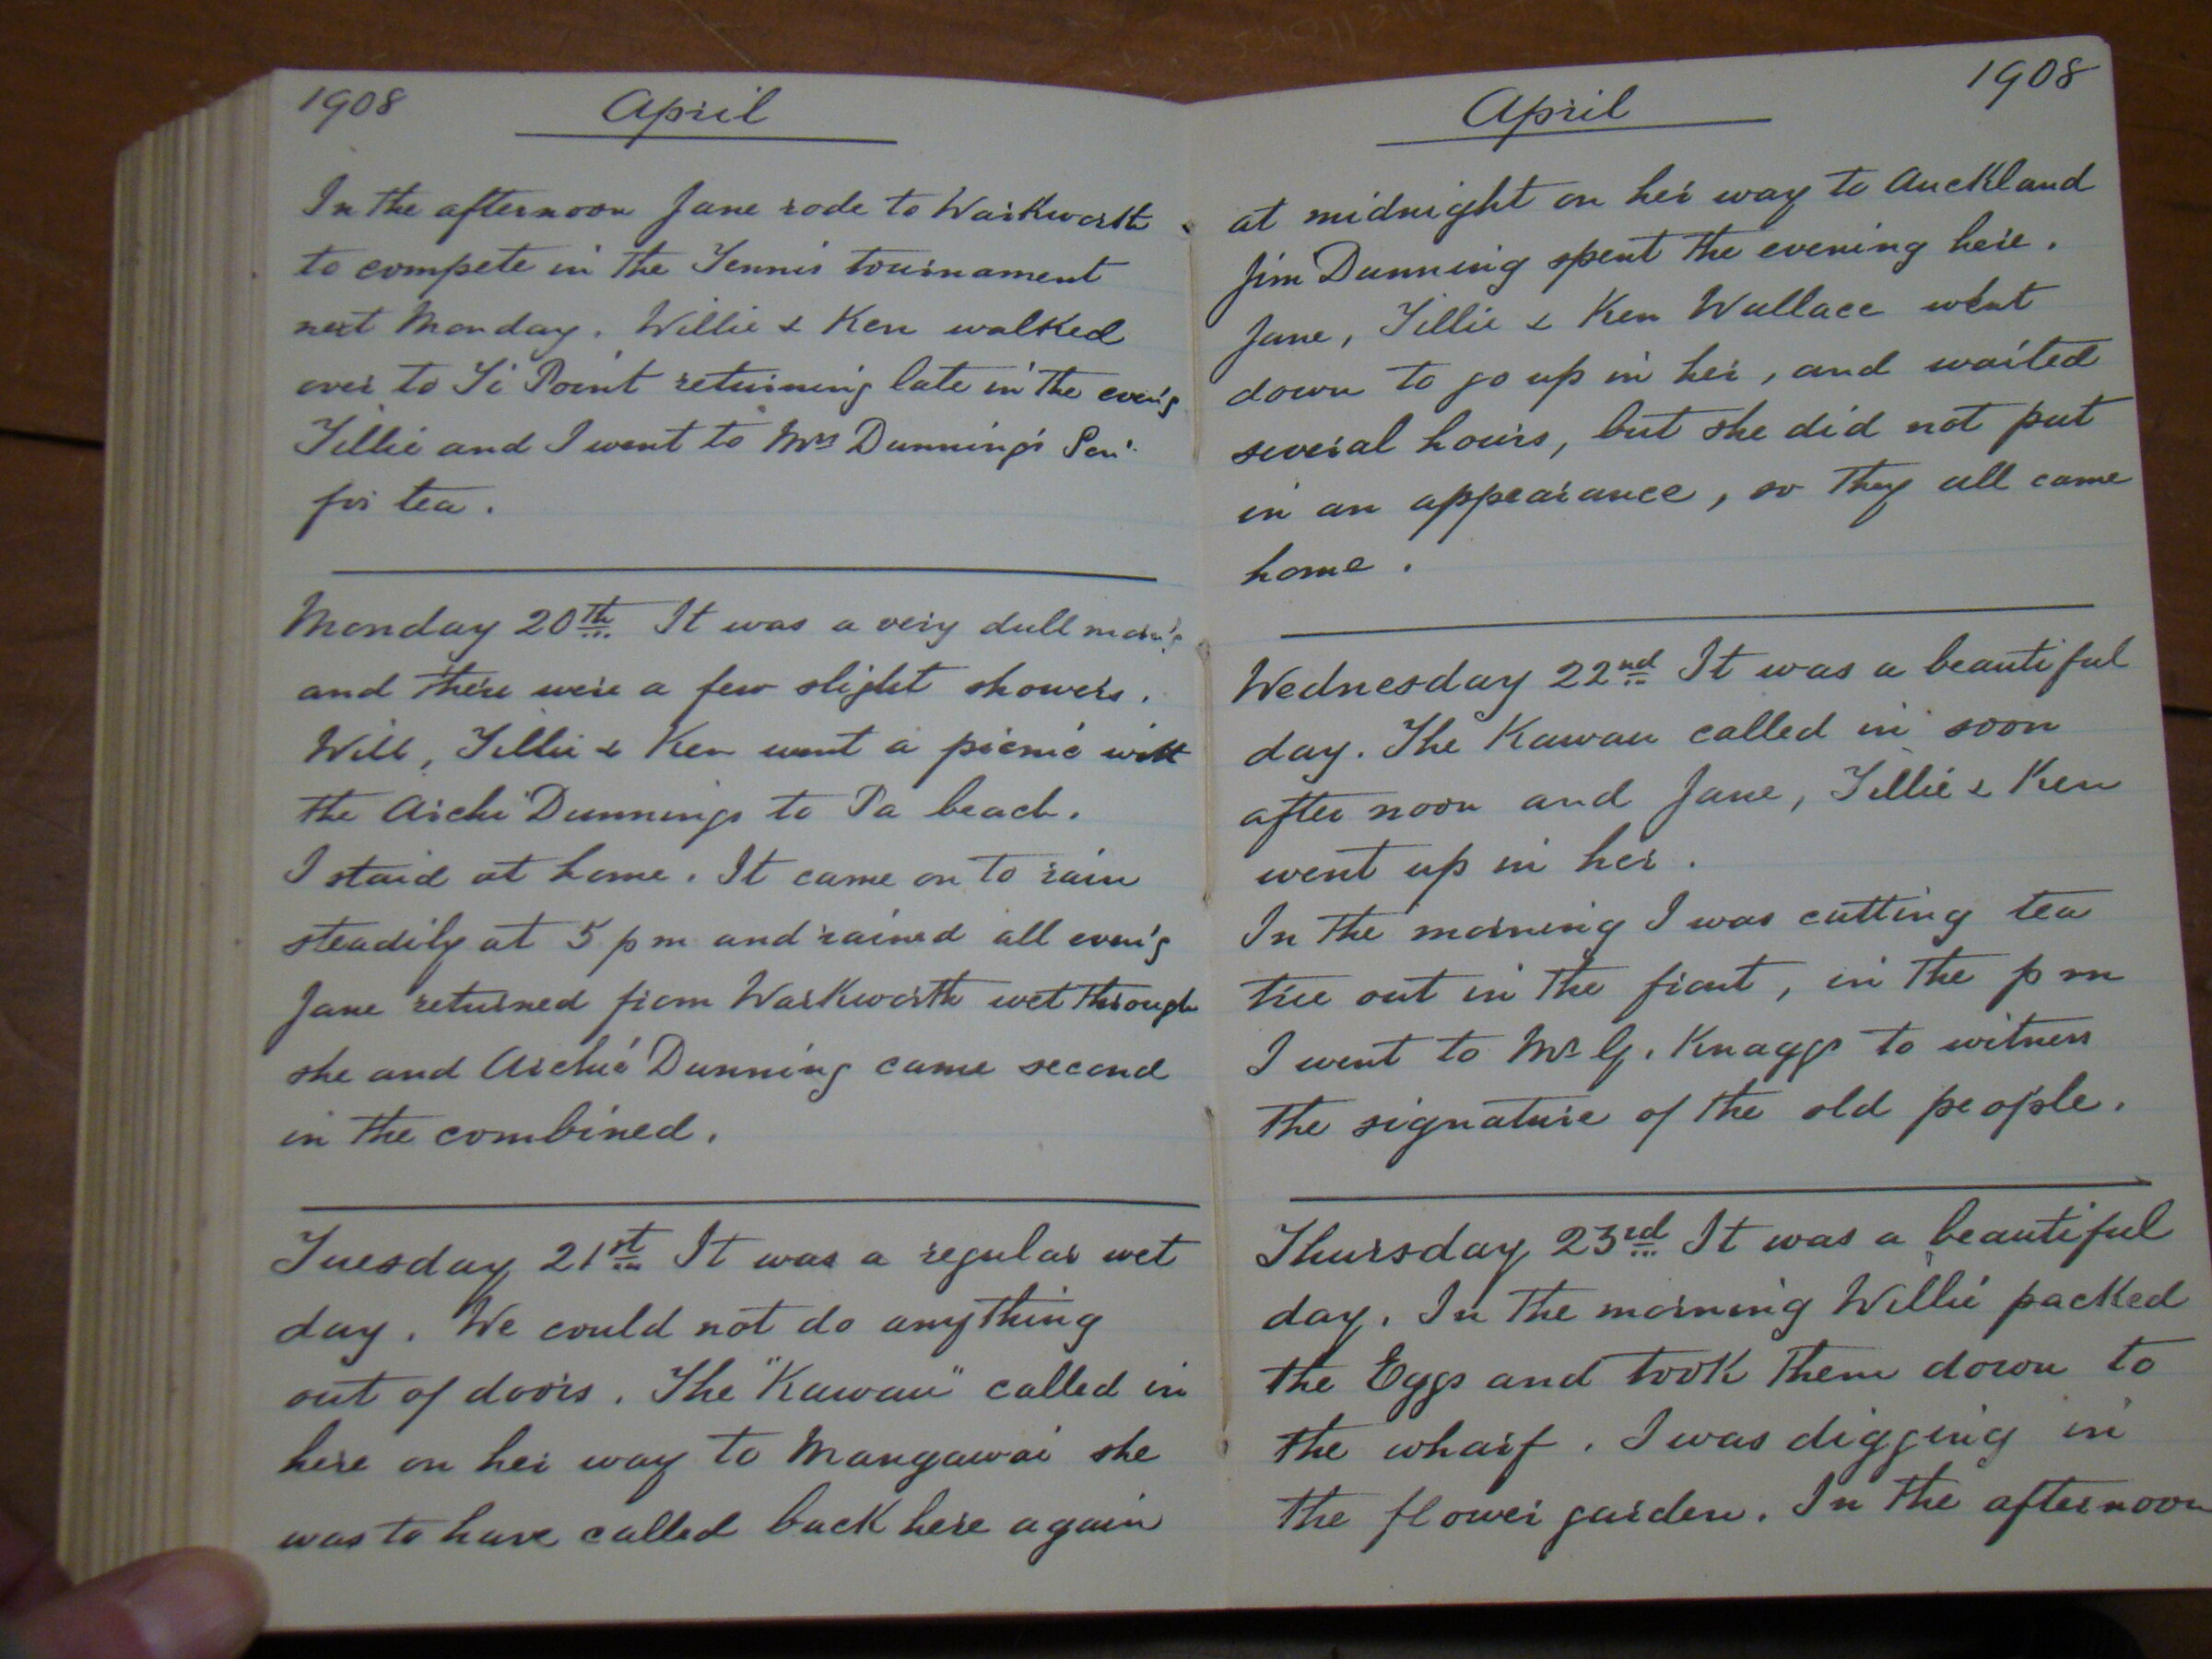 1908 April
In the afternoon Jane rode to Warkworth
to compete in the Tennis tournament
next Monday. Willie & Ken walked
over to Ti Point returning late in the even'g
Tillie and I went to Mrs Dunning's Sen'.
for tea.
Monday 20th It was a very dull morn'g
and there were a few slight showers.
Will, Tillie & Ken went a picnic with
the Archie Dunnings to Pa beach.
I staid at home. It came on to rain
steadily at 5 pm and rained all even'g
Jane returned from Warkworth wet through
she and Archie Dunning came second
in the combined.
Tuesday 21st It was a regular wet
day. We could not do anything
out of doors. The "Kawau" called in
here on her way to Mangawai she
was to have called back here again
April 1908
at midnight on her way to Auckland
Jim Dunning spent the evening here.
Jane, Tillie & Ken Wallace went
down to go up in her, and waited
several hours, but she did not put
in an appearance, so they all came
home.
Wednesday 22nd It was a beautiful
day. The Kawau called in soon
after noon and Jane, Tillie & Ken
went up in her.
In the morning I was cutting tea
tree out in the front, in the pm
I went to Mr G. Knaggs to witness
the signature of the old people.
Thursday 23rd It was a beautiful
day. In the morning Willie packed
the Eggs and took them down to
the wharf. I was digging in
the flower garden. In the afternoon